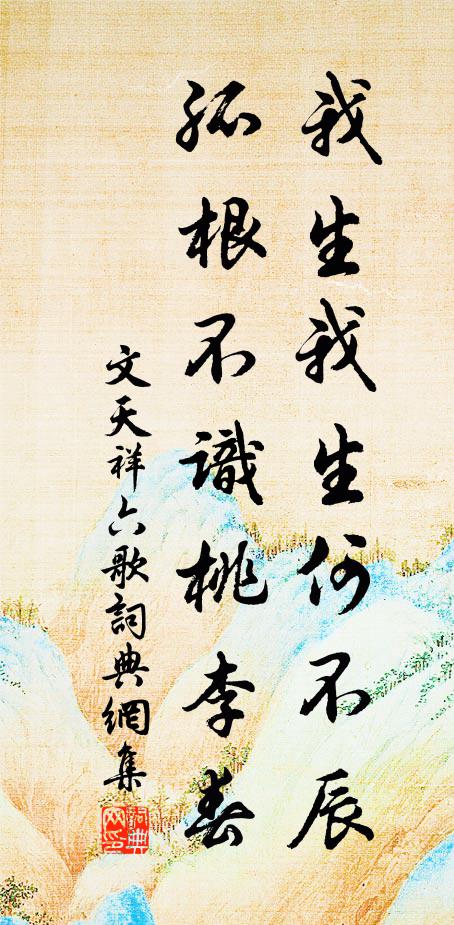 我生我生何不辰
孤根不識桃李春
文天祥六歌詞典網集
詞典
网印